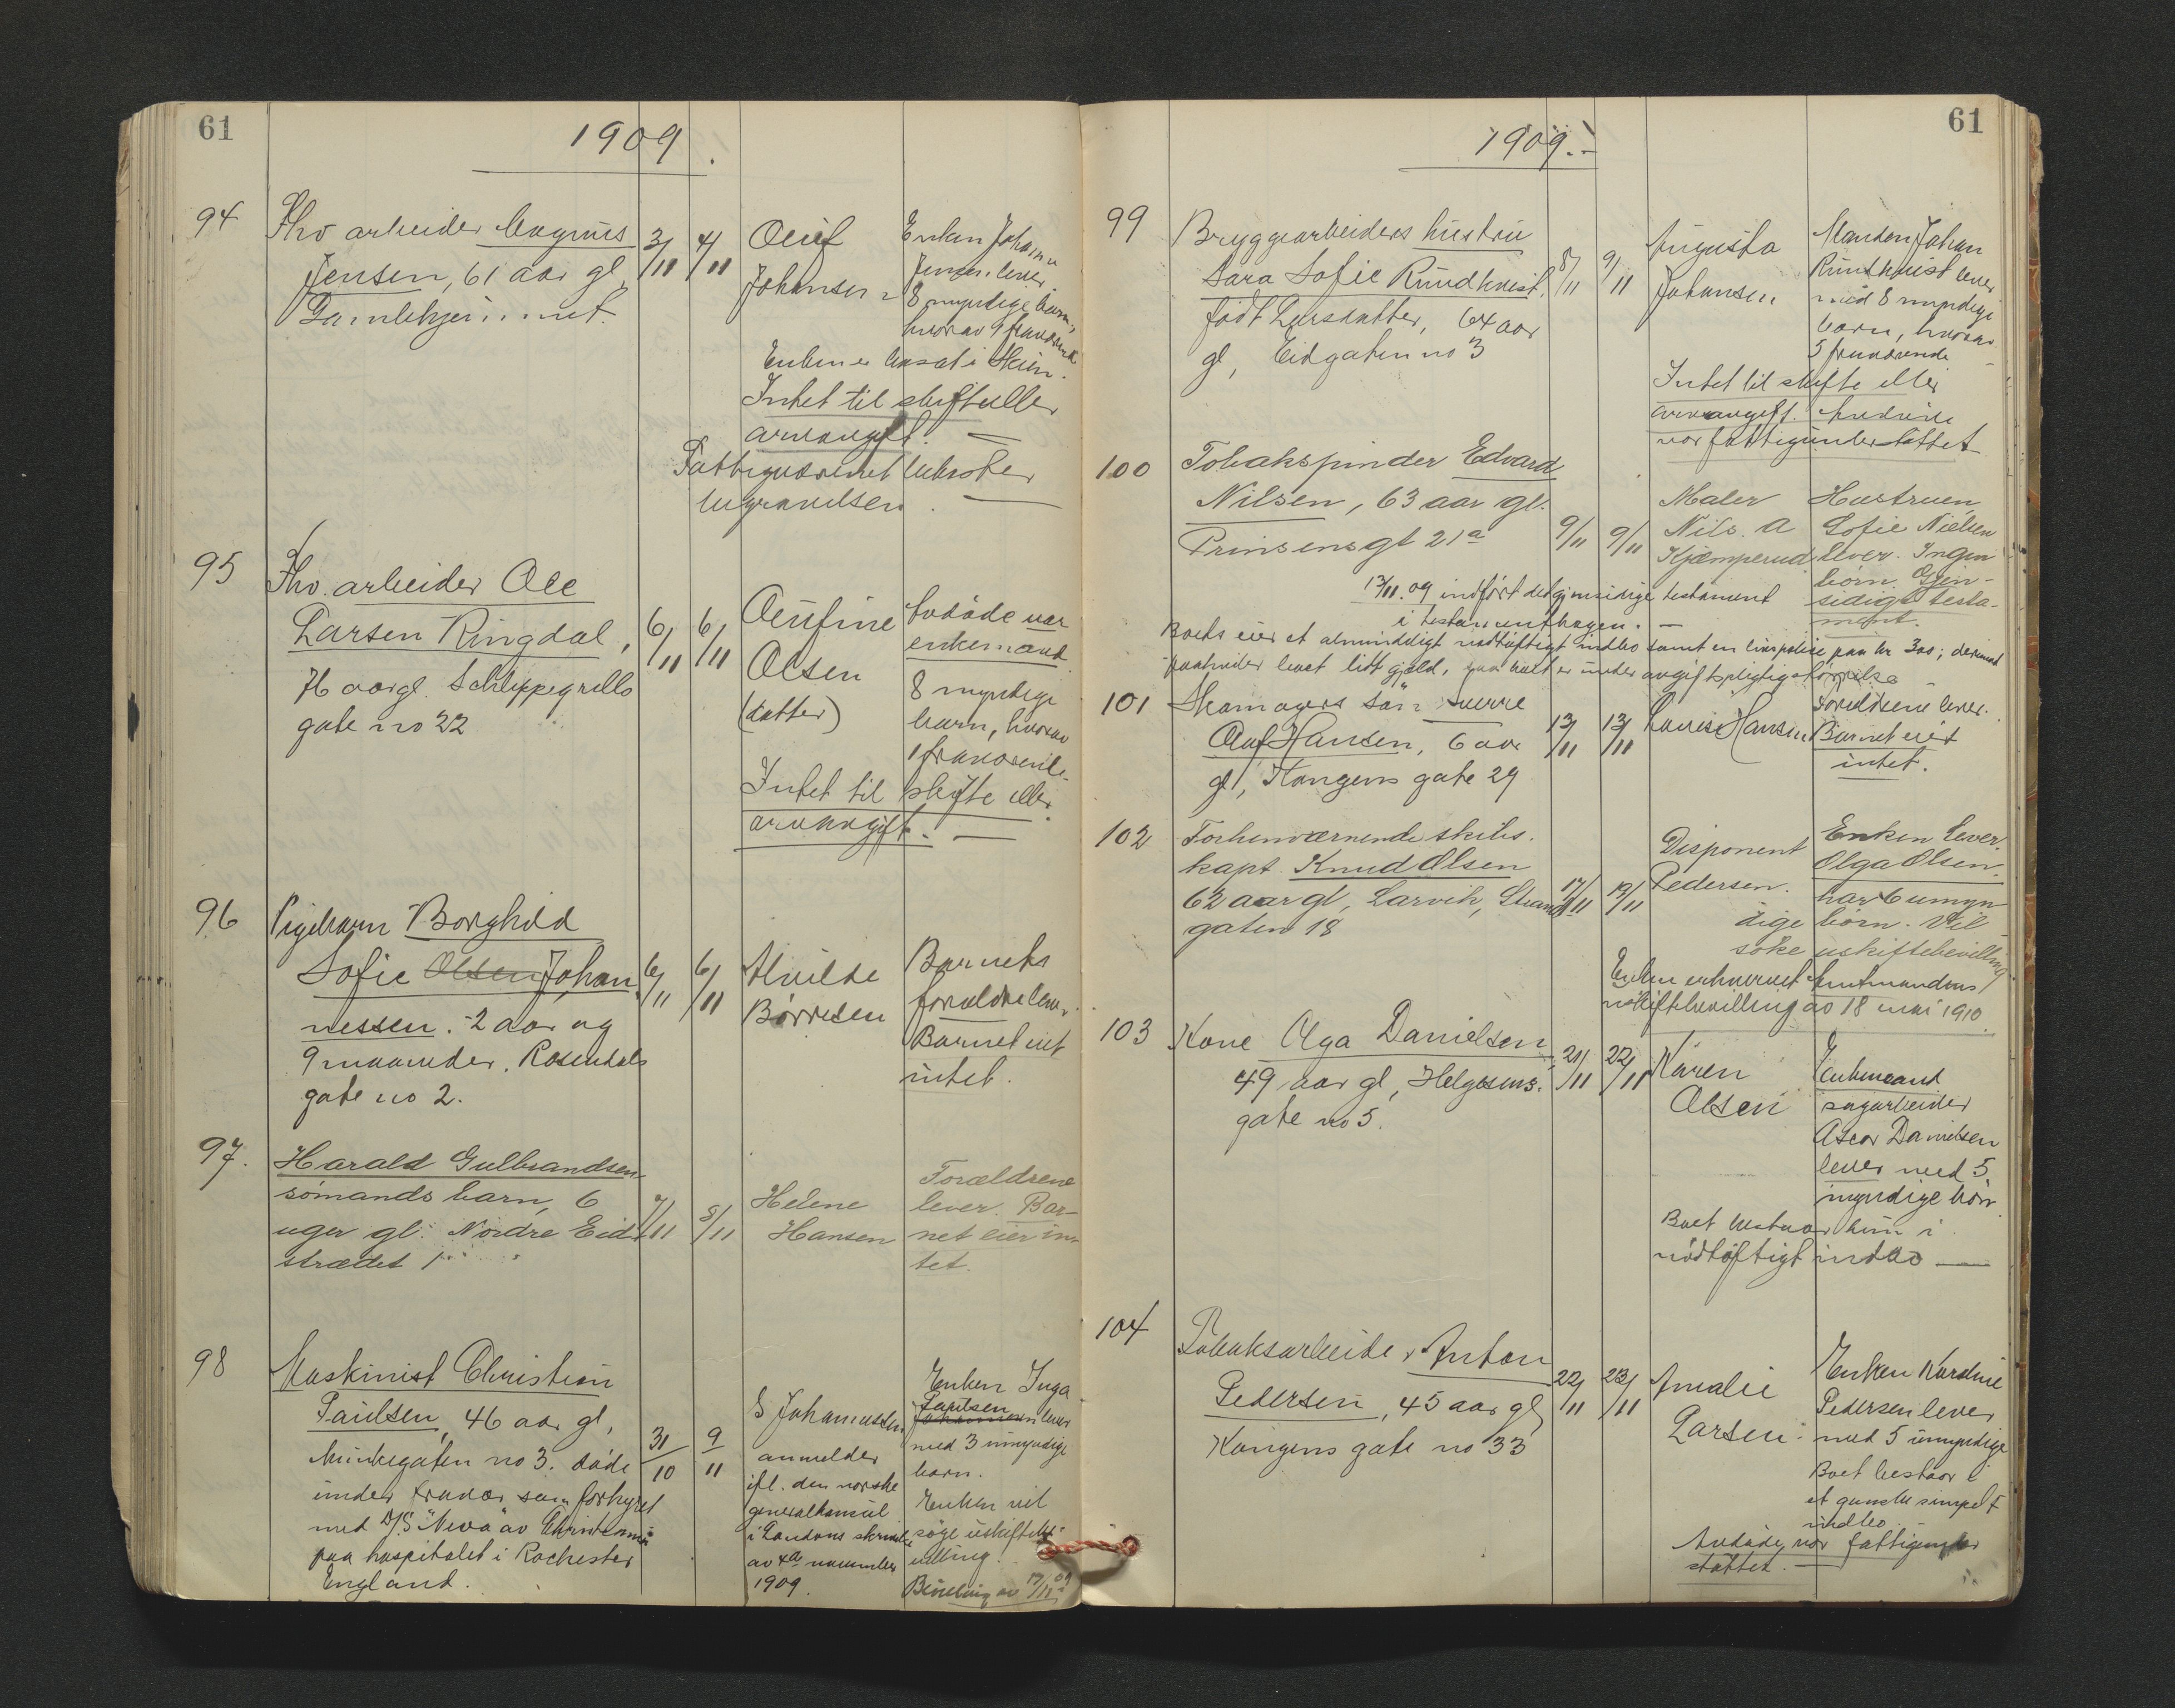 61
1909.
94
Fhv arbeider Magnus
Jensen, 61 aar gl,
Gamlehjemmet.
3/11 4/11
Oluf
Johansen
Enken Johanne
Jensen lever
8 myndige børn,
hvorav 9 fraværende
Enken er bosat i Skien.
Intet til skifte eller
arveavgift. —
Fattigvæsenet bekoster
begravelsen. —
95
Fhv. arbeider Ole
Larsen Ringdal,
76 aar gl. Schleppegrells
gate no 22
6/11 6/11
Olufine
Olsen
(datter)
Avdøde var
enkemand.
8 myndige
børn, hvorav
1 fraværende.
Intet til skifte eller
arveavgift. —
96
Pigebarn Borghild
Sofie Olsen Johan
nessen. 2 aar og
9 maaneder. Rosendals
gate no 2.
6/11 6/11
Alvilde
Børresen
Barnets
forældre lever.
Barnet eiet
intet.
97.
Harald Gulbrandsen,
sømands barn, 6
uger gl. Nordre Eid
strædet 1
7/11 8/11
Helene
Hansen
Forældrene
lever. Bar-
net eier in-
tet.
98
Maskinist Christian
Paulsen, 46 aar gl,
Munkegaten no 3. døde
under fravær som forhyret
med D/S "Neva" av Christiania
paa hospitalet i Rochester
England.
31/10 9/11
S Johannessen
anmelder
ifl. den norske
generalkonsul
i Londons skrivelse
av 4de november
1909.
Enken Inga
Paulsen
Johannessen lever
med 3 umyndige
børn.
Enken vil
søge uskiftebe-
villing.
Bevilling av 17/11 09
61
1909.
99
Bryggearbeiders hustru
Sara Sofie Rundkvist,
født Larsdatter, 64 aar
gl, Eidgaten no 3
8/11 9/11
Augusta
Johansen
Manden Johan
Rundkvist lever
med 8 myndige
børn, hvorav
5 fraværende
Intet til skifte eller
arveavgift. Avdøde
var fattigunderstøttet
100
Tobakspinder Edvard
Nilsen, 63 aar gl.
Prinsensgt 21a
9/11 9/11
Maler
Nils. A
Kjæmperud
Hustruen,
Sofie Nielsen
lever. Ingen
børn. Gjen-
sidigt testa-
ment.
13/11.09 indført det gjensidige testament
i testamentbogen. —
Boets eier et almindeligt nødtøftigt indbo samt en livspolise paa kr 300; derimot
paahviler boet lidt gjæld, saa boet er under avgiftspligtig størrelse
101
Skomagers søn Sverre
Olaf Hansen, 6 aar
gl, Kongens gate 29
13/11 13/11
Lovise Hansen
Forældrene lever.
Barnet eiet
intet.
102
Forhenværende skibs.
kapt. Knud Olsen
62 aar gl, Larvik, Strand
gaten 18
17/11 19/11
Disponent
Pedersen.
Enken lever.
Olga Olsen.
har 6 umyn
dige børn. Vil
søke uskiftebevilling
Enken erhvervet Amtmandens
uskiftebevilling av 18 mai 1910.
103
Kone Olga Danielsen,
49 aar gl, Helgesens.
gate no 5.
21/11 22/11
Karen
Olsen
Enkemand
sagarbeider
Oscar Danielsen
lever med 5
myndige børn
Boet bestaar kun i
nødtøftigt indbo —
104
Tobaksarbeider Anton
Pedersen, 45 aar gl,
Kongens gate no 33
22/11 23/11
Amalie
Larsen
Enken Karoline
Pedersen lever
med 5 umyndige
Boet bestaar i
et ganske simpelt
indbo
Avdøde var fattigunder
støttet. —